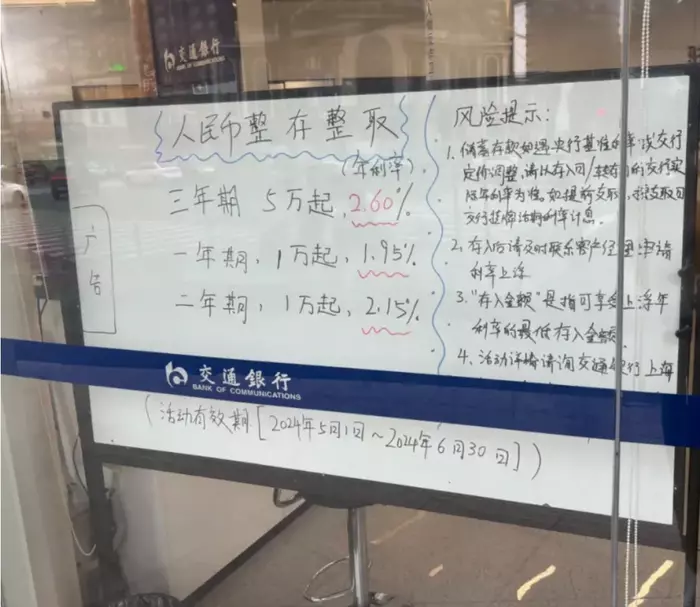 交通銀行
BANK OF COMMUNICATIONS
人民币整存整取
(年利率)
三年期 5万起, 2.60%
一年期, 1万起, 1.95%
二年期, 1万起, 2.15%
广告
风险提示:
1. 储蓄存款如遇央行基准利率或交行
定价调整, 请以存入日/转存日的交行实
际年利率为准。如提前支取, 按支取日
交行挂牌活期利率计息.
2. 存入后请及时联系客户经理申请
利率上浮
3. "存入金额"是指可享受上浮年
利率的最低存入金额.
4. 活动详情请询交通银行上海
交通銀行
BANK OF COMMUNICATIONS
(活动有效期[2024年5月1日~2024年6月30日])